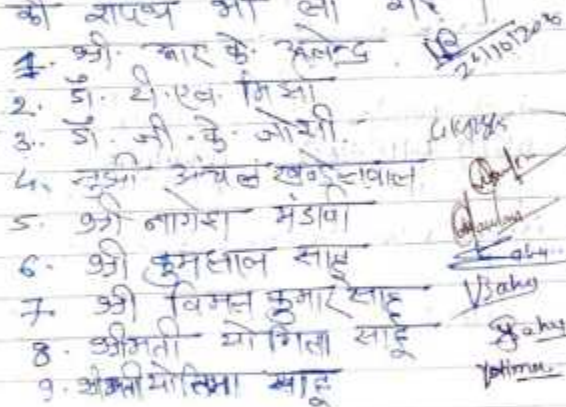 की शपथ भी ली गई।
1. श्री. आर. के. 
2. डॉ. टी. एच. मिर्जा
3. डॉ. जी. के. जोशी.
4. सुश्री अंचल खण्डेलवाल
5. श्री नागेश मंडावी
6. श्री हुमलाल साहू
Sahu
7. श्री विमल कुमार साहू
VSahu
8. श्रीमती योगिता साहू
YSahu
9. श्रीमती योतिमा साहू
Yotima